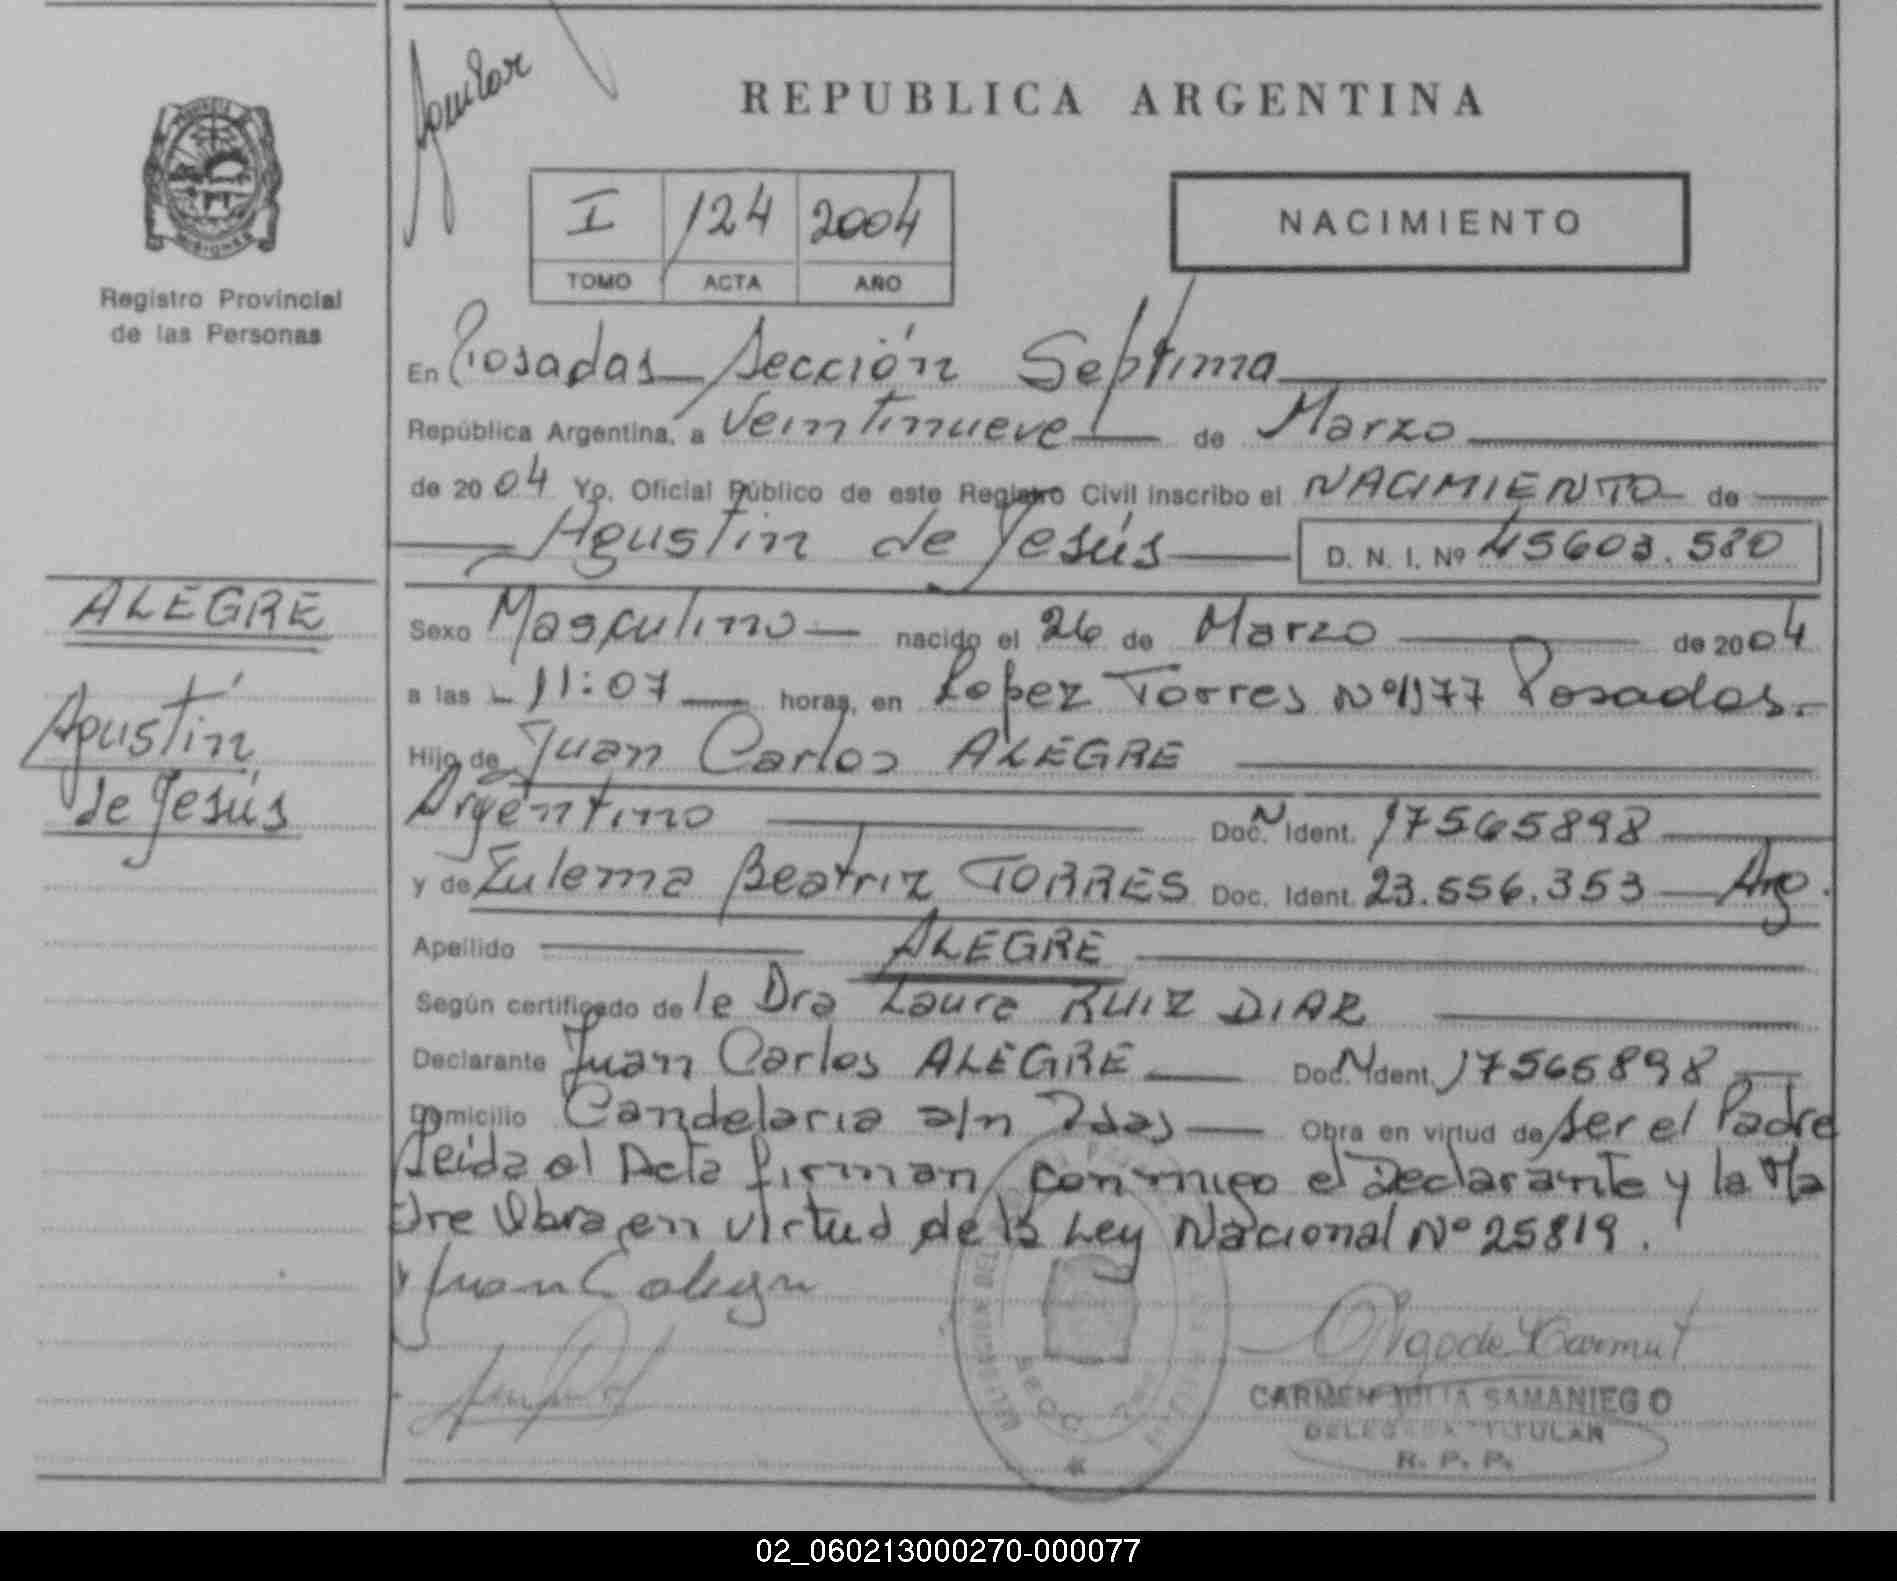 Aguilar
REPUBLICA ARGENTINA
I 124 2004
TOMO ACTA AÑO
NACIMIENTO
MISIONES
Registro Provincial
de las Personas
En Posadas Sección Septima
República Argentina, a Veintinueve de Marzo
de 2004 Yo, Oficial Público de este Registro Civil inscribo el NACIMIENTO de
Agustin de Jesús D. N. I. Nº 45603.580
ALEGRE
Agustín
de Jesús
Sexo Masculino nacido el 26 de Marzo de 2004
a las 11:07 horas, en Lopez Torres Nº1177 Posadas.
Hijo de Juan Carlos ALEGRE
Argentino Doc. N Ident. 17565898
y de Zulema Beatriz TORRES Doc. Ident. 23.556.353 Arg.
Apellido ALEGRE
Según certificado de la Dra Laura RUIZ DIAZ
Declarante Juan Carlos ALEGRE Doc. N Ident. 17565898
Domicilio Candelaria s/n Obra en virtud de ser el Padre
Leida el Acta firman conmigo el Declarante y la Ma
dre Obra en virtud de la Ley Nacional Nº 25819.
Juan C Alegre
CARMEN JULIA SAMANIEGO
DELEGADA TITULAR
R. P. P.
02_060213000270-000077